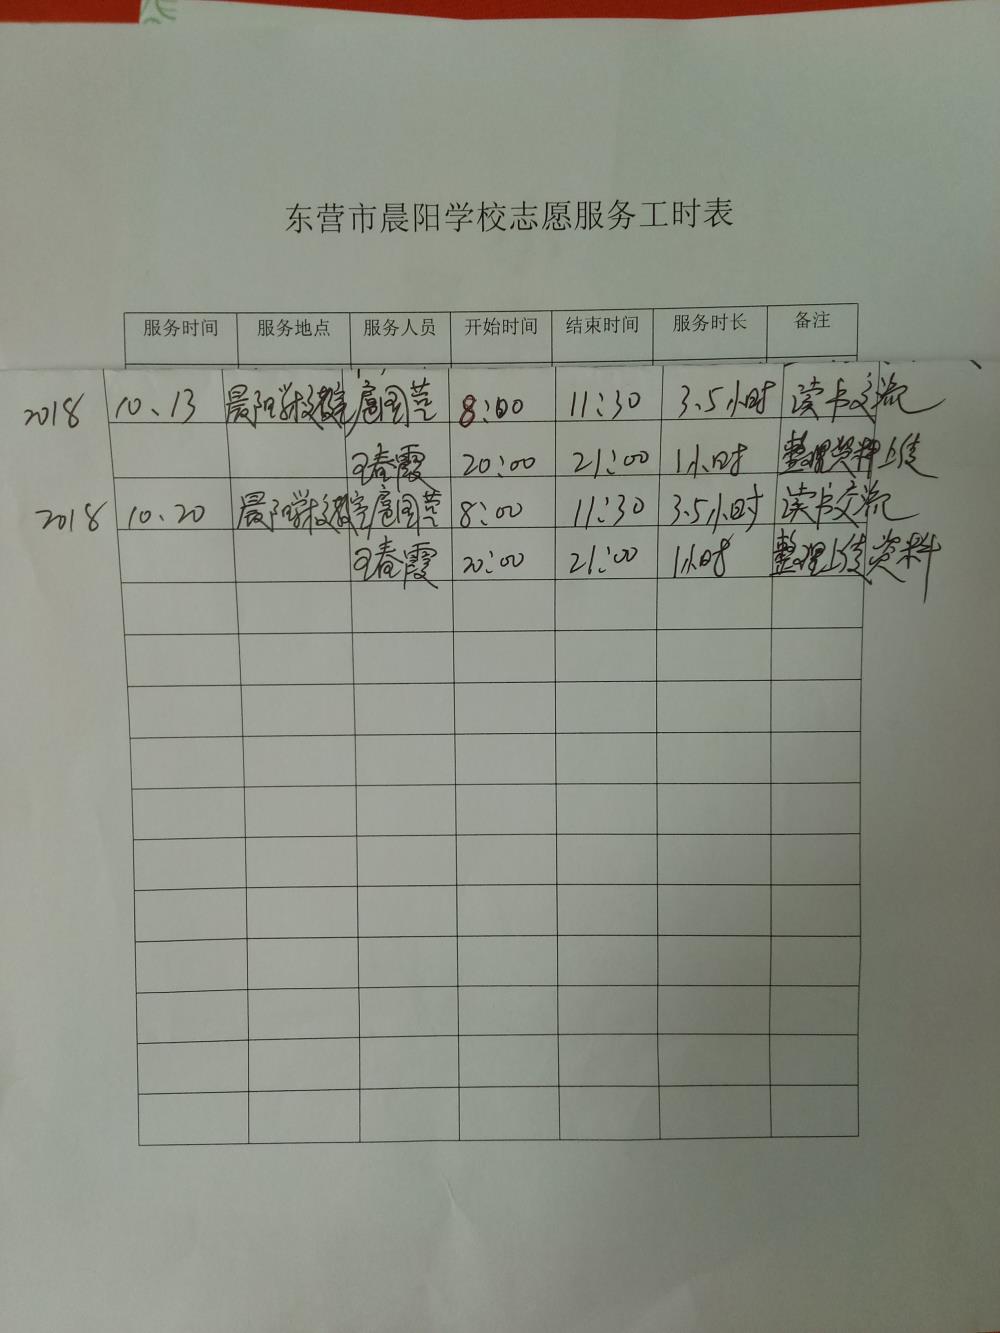 东营市晨阳学校志愿服务工时表
服务时间 服务地点 服务人员 开始时间 结束时间 服务时长 备注
2018 10、13 晨阳学校教室 扈国芸 8:00 11:30 3.5小时 读书交流
王春霞 20:00 21:00 1小时 整理资料上传
2018 10.20 晨阳学校教室 扈国芸 8:00 11:30 3.5小时 读书交流
王春霞 20:00 21:00 1小时 整理上传资料